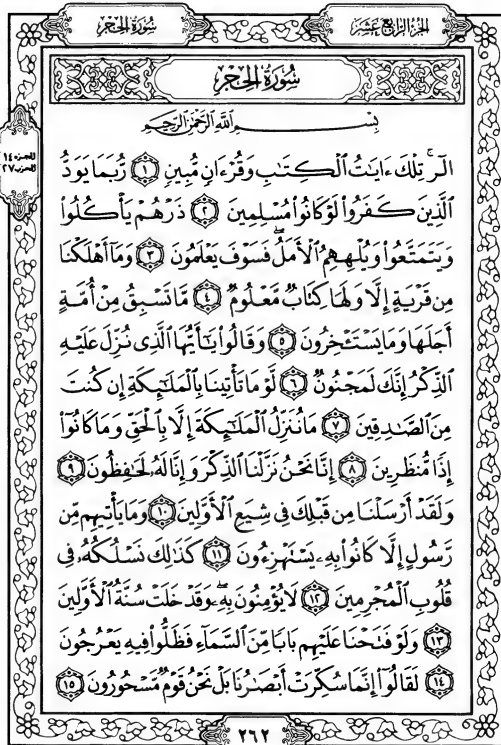 الجزء الرابع عشر
سورة الحجر
سُورَةُ الحِجْر
بِسْمِ اللَّهِ الرَّحْمَٰنِ الرَّحِيمِ
للجزء ١٤
للحزب ٢٧
الٓرۚ تِلْكَ ءَايَٰتُ ٱلْكِتَٰبِ وَقُرْءَانٖ مُّبِينٖ ۝١ رُّبَمَا يَوَدُّ
ٱلَّذِينَ كَفَرُوا۟ لَوْ كَانُوا۟ مُسْلِمِينَ ۝٢ ذَرْهُمْ يَأْكُلُوا۟
وَيَتَمَتَّعُوا۟ وَيُلْهِهِمُ ٱلْأَمَلُۖ فَسَوْفَ يَعْلَمُونَ ۝٣ وَمَآ أَهْلَكْنَا
مِن قَرْيَةٍ إِلَّا وَلَهَا كِتَابٌ مَّعْلُومٌ ۝٤ مَّا تَسْبِقُ مِنْ أُمَّةٍ
أَجَلَهَا وَمَا يَسْتَـْٔخِرُونَ ۝٥ وَقَالُوا۟ يَٰٓأَيُّهَا ٱلَّذِى نُزِّلَ عَلَيْهِ
ٱلذِّكْرُ إِنَّكَ لَمَجْنُونٌ ۝٦ لَّوْ مَا تَأْتِينَا بِٱلْمَلَٰٓئِكَةِ إِن كُنتَ
مِنَ ٱلصَّٰدِقِينَ ۝٧ مَا نُنَزِّلُ ٱلْمَلَٰٓئِكَةَ إِلَّا بِٱلْحَقِّ وَمَا كَانُوٓا۟
إِذًا مُّنظَرِينَ ۝٨ إِنَّا نَحْنُ نَزَّلْنَا ٱلذِّكْرَ وَإِنَّا لَهُۥ لَحَٰفِظُونَ ۝٩
وَلَقَدْ أَرْسَلْنَا مِن قَبْلِكَ فِى شِيَعِ ٱلْأَوَّلِينَ ۝١٠ وَمَا يَأْتِيهِم مِّن
رَّسُولٍ إِلَّا كَانُوا۟ بِهِۦ يَسْتَهْزِءُونَ ۝١١ كَذَٰلِكَ نَسْلُكُهُۥ فِى
قُلُوبِ ٱلْمُجْرِمِينَ ۝١٢ لَا يُؤْمِنُونَ بِهِۦۖ وَقَدْ خَلَتْ سُنَّةُ ٱلْأَوَّلِينَ
۝١٣ وَلَوْ فَتَحْنَا عَلَيْهِم بَابًا مِّنَ ٱلسَّمَآءِ فَظَلُّوا۟ فِيهِ يَعْرُجُونَ
۝١٤ لَقَالُوٓا۟ إِنَّمَا سُكِّرَتْ أَبْصَٰرُنَا بَلْ نَحْنُ قَوْمٌ مَّسْحُورُونَ ۝١٥
٢٦٢